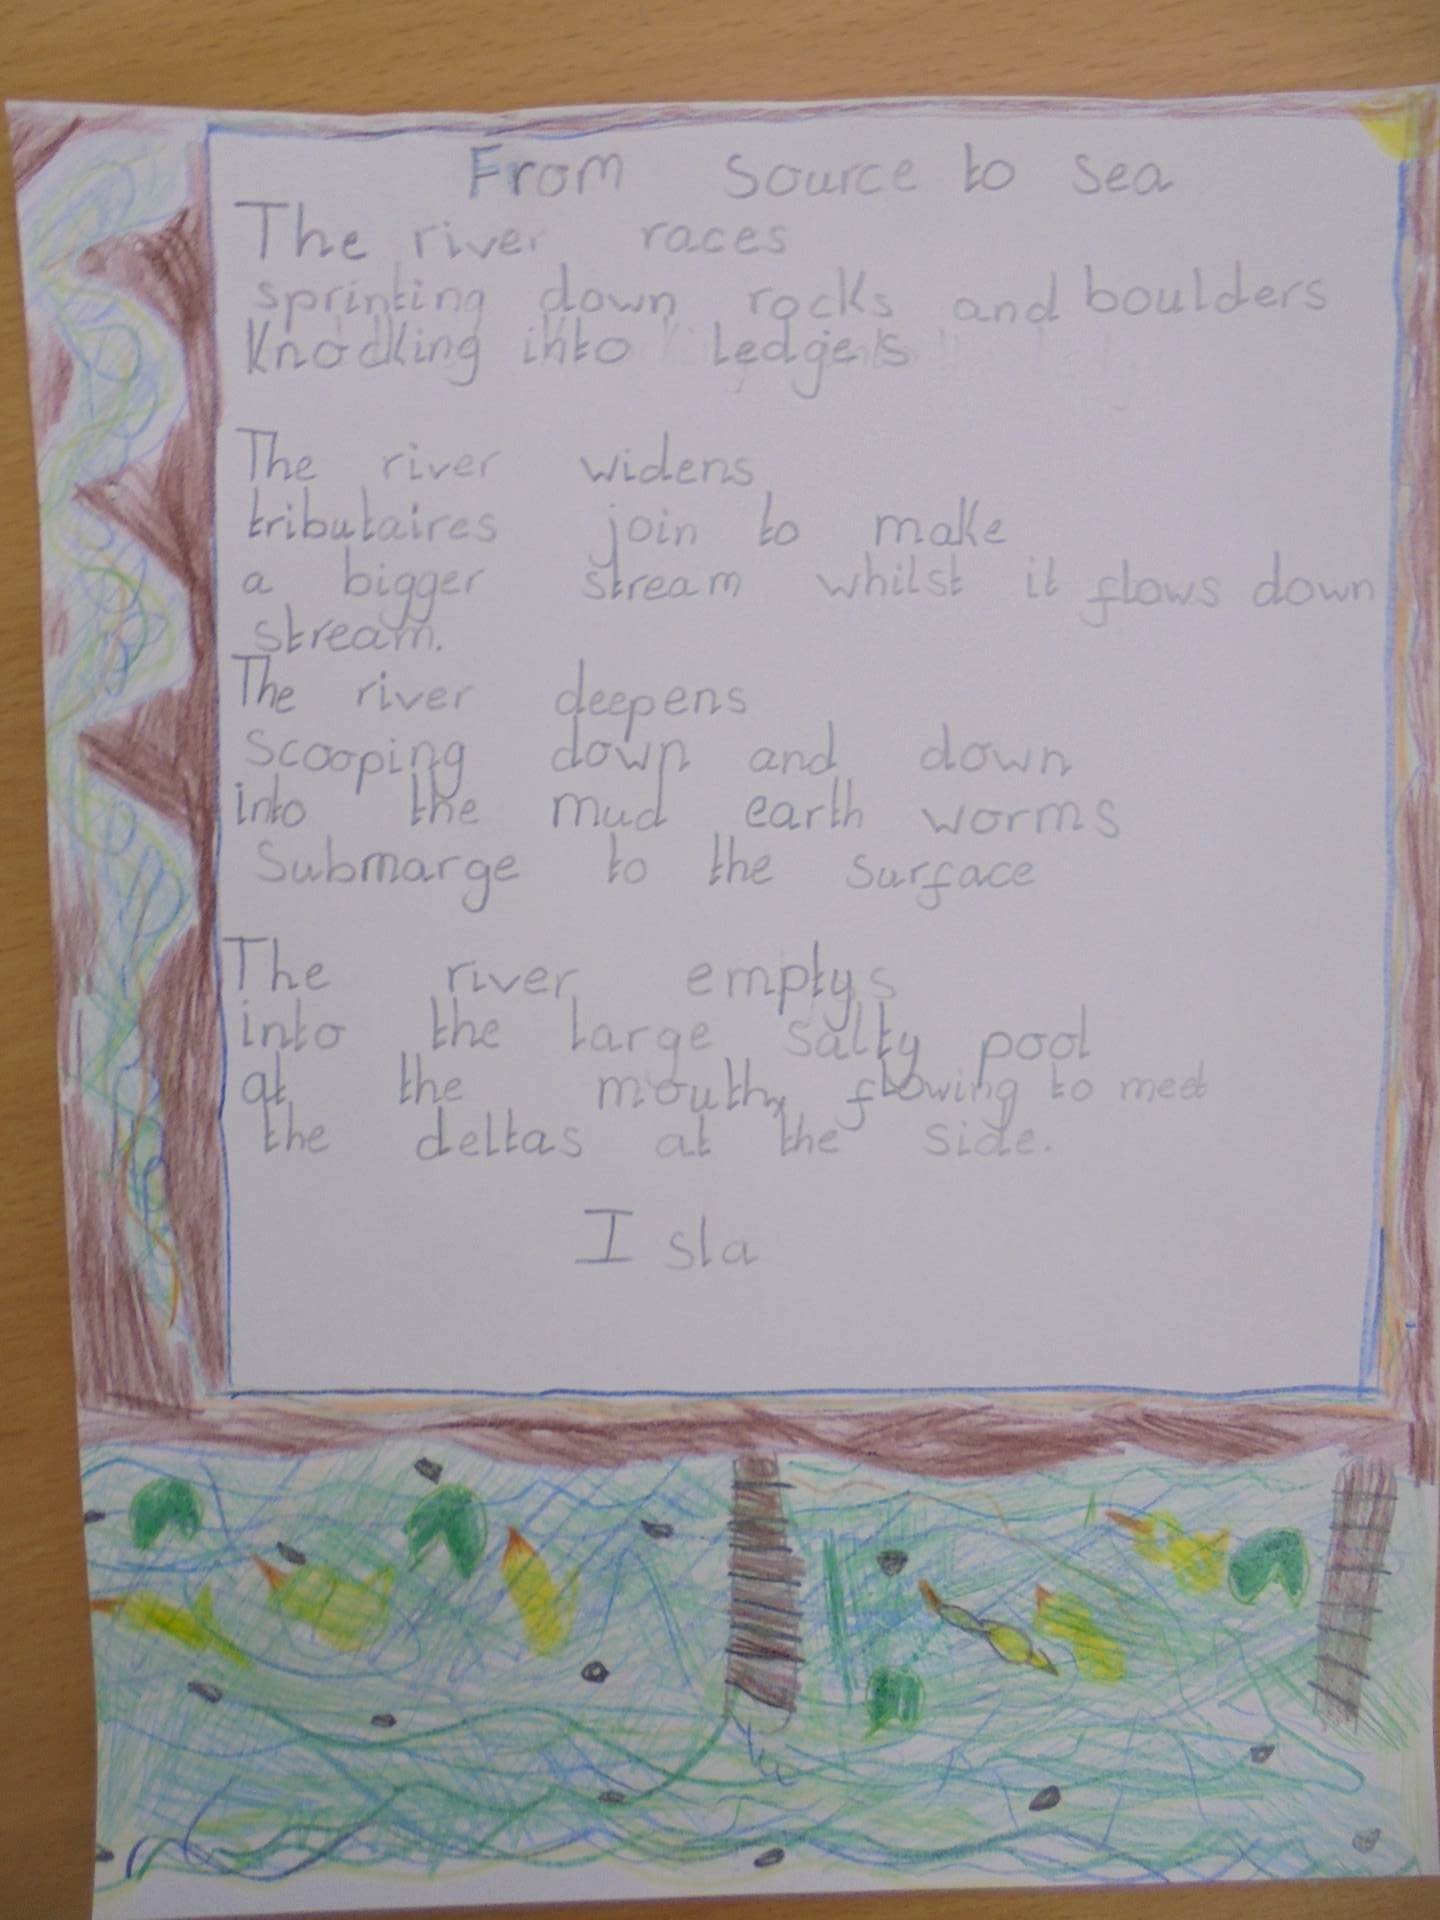 From Source to Sea
The river races
sprinting down rocks and boulders
Knocking into Ledges
The river widens
tributaires join to make
a bigger stream whilst it flows down
stream.
The river deepens
Scooping down and down
into the mud earth worms
Submarge to the surface
The river emptys
into the large salty pool
at the mouth, flowing to meet
the deltas at the side.
Isla